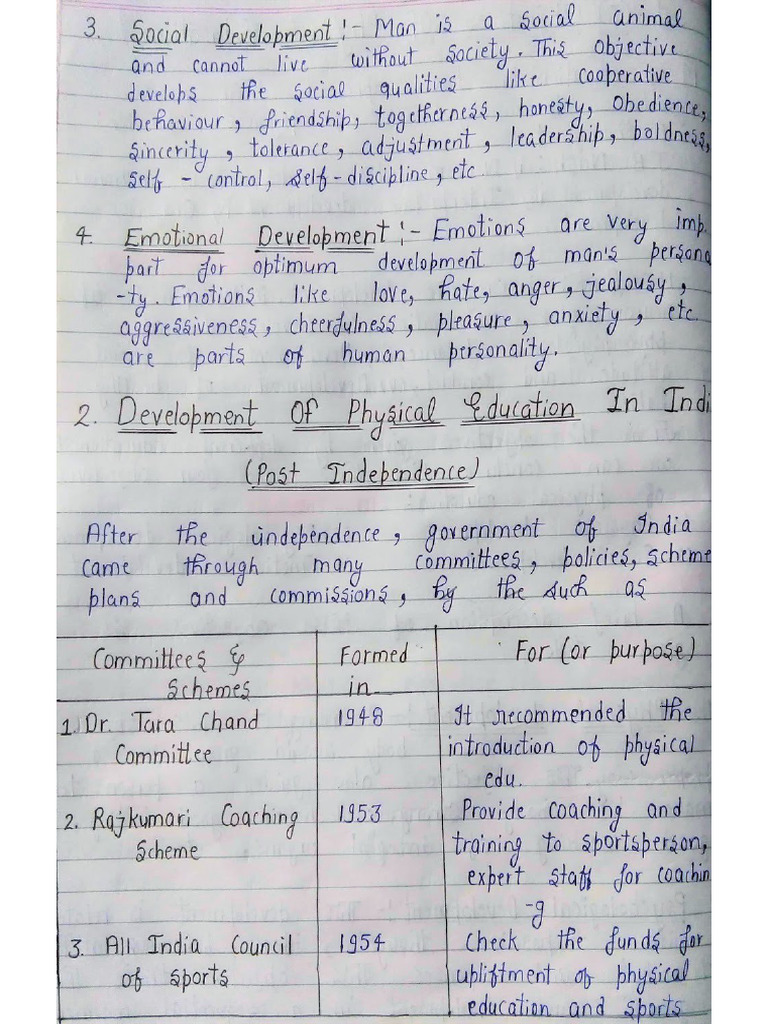 3. Social Development :- Man is a social animal
and cannot live without society. This objective
develops the social qualities like cooperative
behaviour, friendship, togetherness, honesty, obedience,
sincerity, tolerance, adjustment, leadership, boldness,
self - control, self-discipline, etc
4. Emotional Development :- Emotions are very imp.
part for optimum development of man's persona
-ty. Emotions like love, hate, anger, jealousy,
aggressiveness, cheerfulness, pleasure, anxiety, etc.
are parts of human personality.
2. Development Of Physical Education In Indi
(Post Independence)
After the independence, government of India
came through many committees, policies, scheme
plans and commissions, by the such as
Committees & Schemes | Formed in | For (or purpose)
1. Dr. Tara Chand | 1948 | It recommended the
Committee | introduction of physical
edu.
2. Rajkumari Coaching | 1953 | Provide coaching and
Scheme | training to sportsperson,
expert staff for coachin
-g
3. All India Council | 1954 | Check the funds for
of sports | upliftment of physical
education and sports